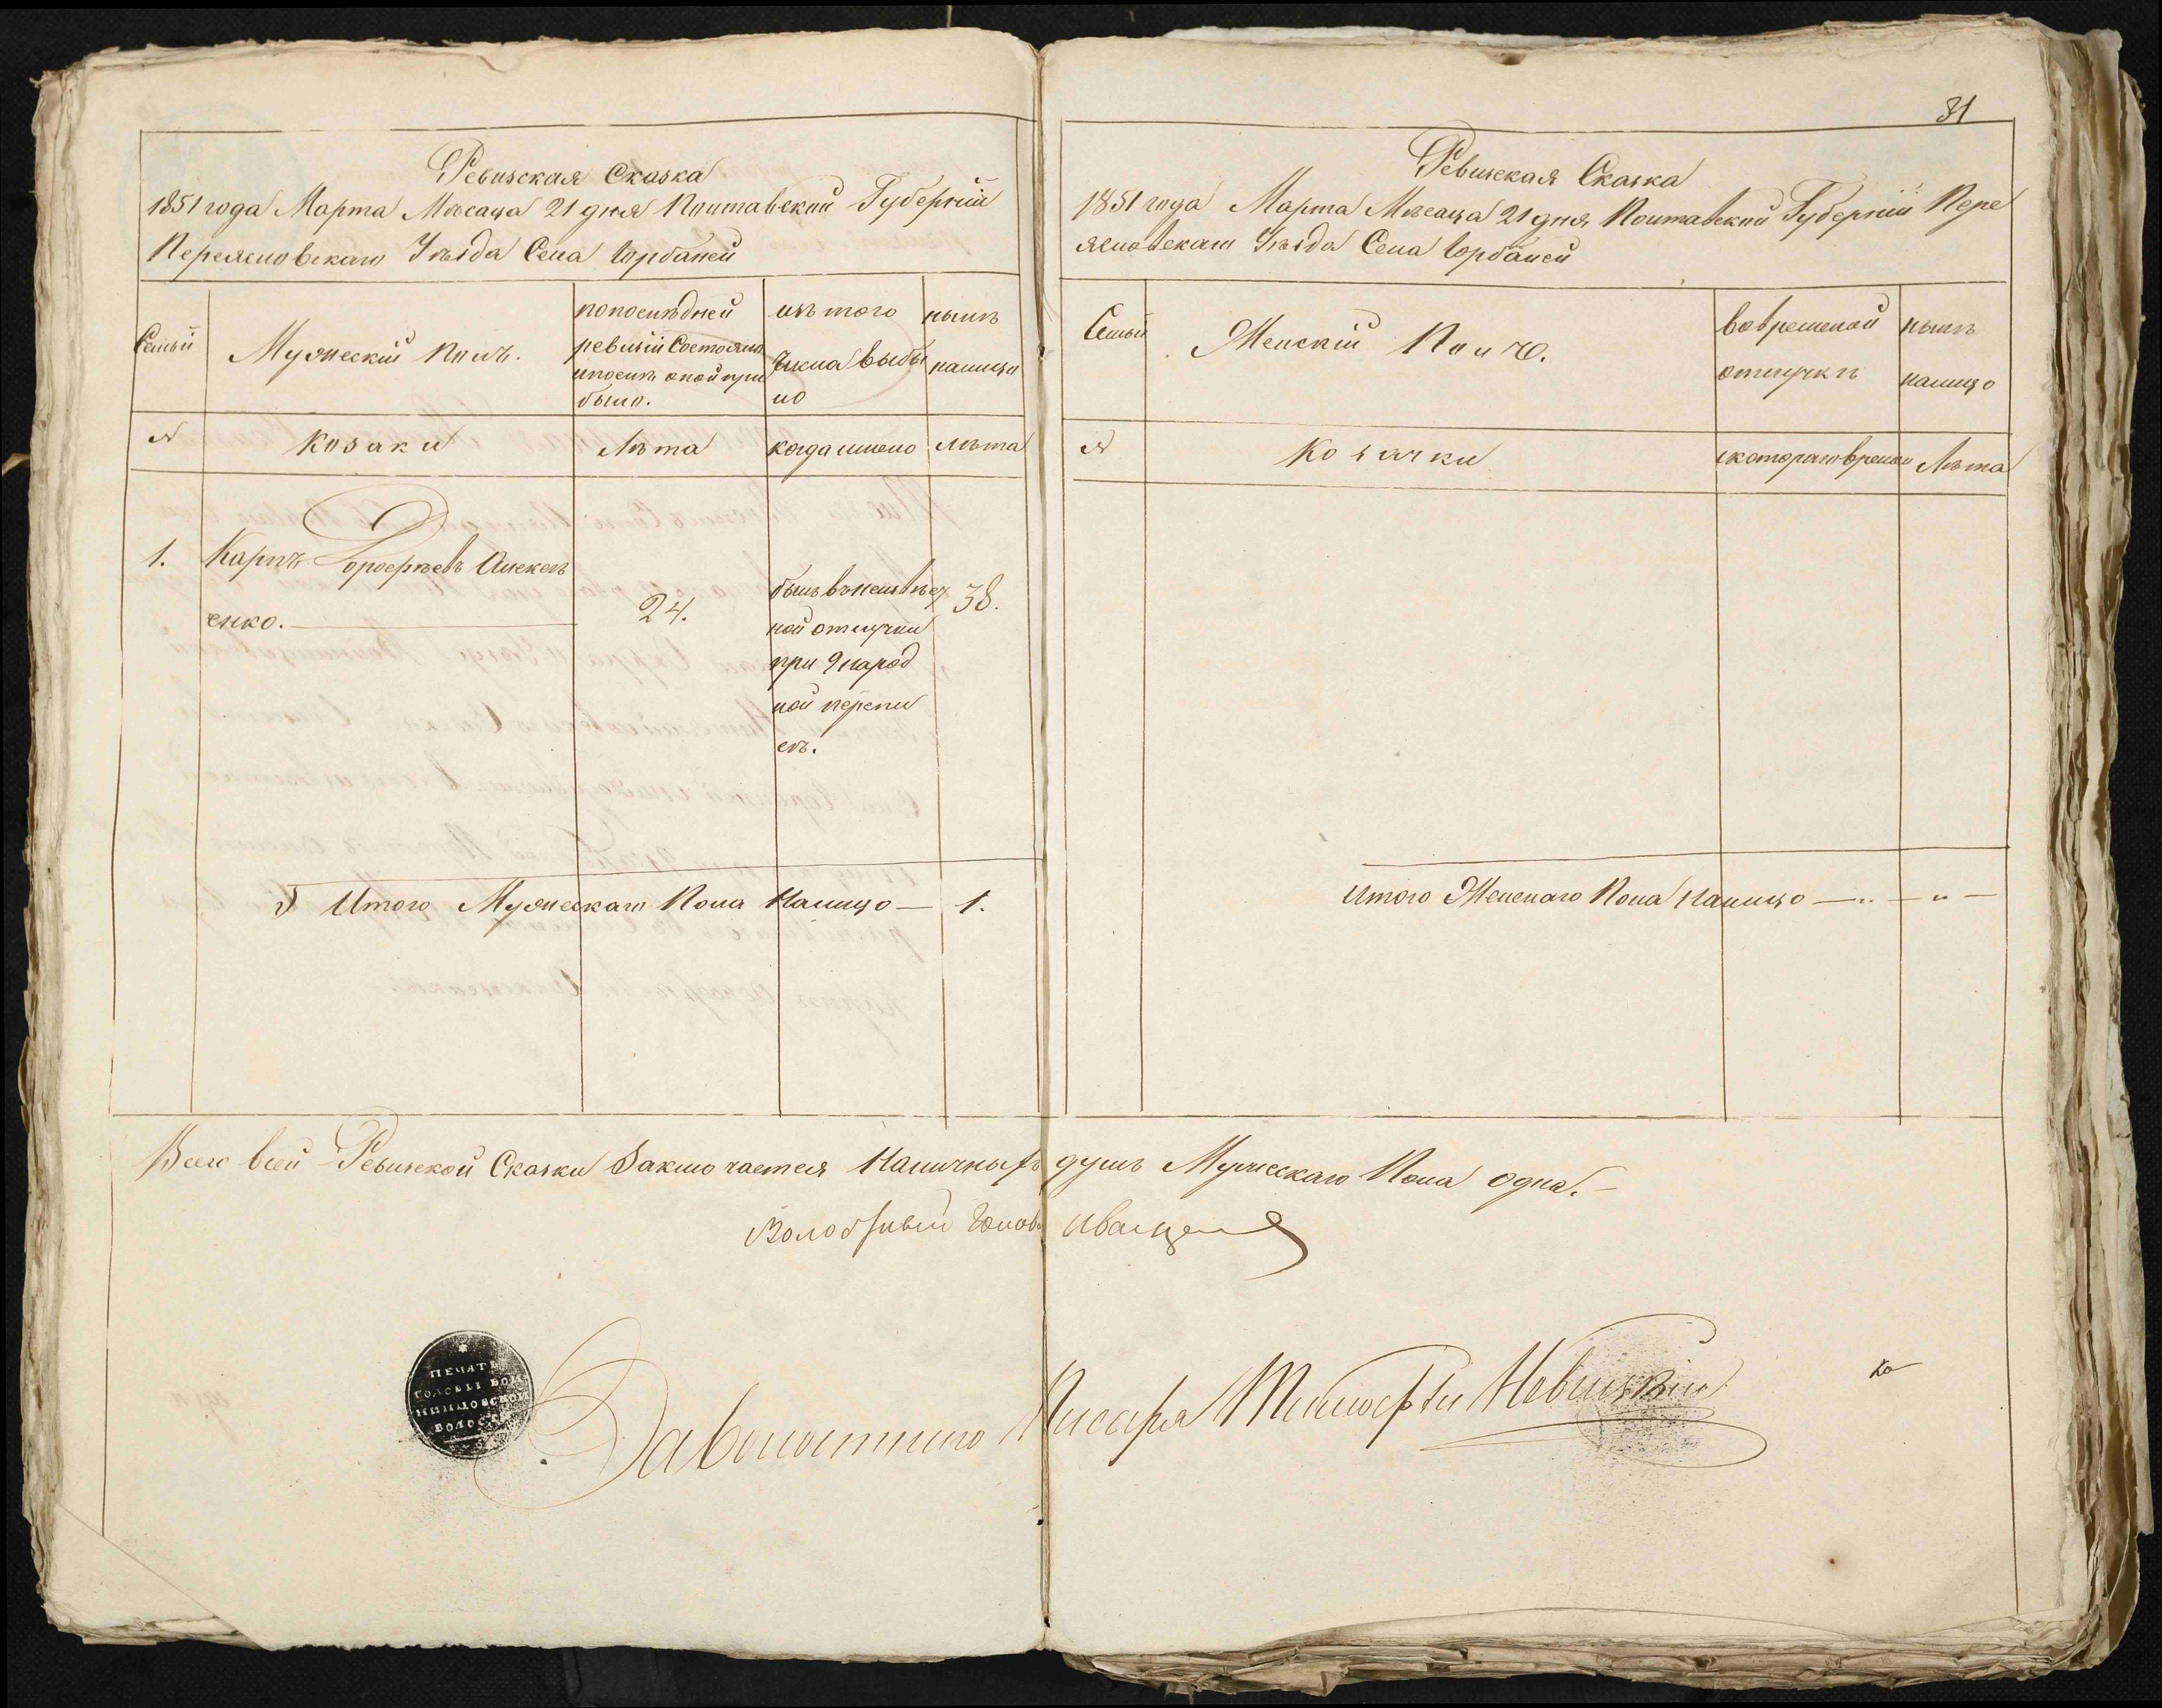 Ревизская Сказка
1851 года Марта Месаца 21 дня Полтавской Губерніи
Переяславскаго Уѣзда Села Горбаней
Семьи
Мужескій полъ.
попослѣдней
ревизіи Состояло
ипослѣ оной при
было.
изъ того
числа выбы
ло
нынѣ
налицо
№
козаки
Лѣта
когда имено
лѣта
1.
Карпъ Дорофѣевъ Алексѣ
енко.
24.
былъ въ неизвѣст
ной отлучки
при 9 народ
ной перепи
съ.
38.
Итого Мужескаго Пола Налицо — 1.
81
Ревизская Сказка
1851 года Марта Мѣсаца 21 дня Полтавской Губерніи Пере
яславскаго Уѣзда Села Горбаней
Семьи
Женскій Полъ.
во временой
отлучкѣ
нынѣ
налицо
№
Козачки
скотораго времени
Лѣта
Итого Женскаго Пола Налицо — „ — „ —
Всего всей Ревизской Сказки Заключается Наличныхъ душъ Мужескаго Пола одна. —
Волостный Голова Иващен
ПЕЧАТЬ
ГОЛОВЫ ВОЙ
ВОЛОСТИ
За волостного Писаря Тимофѣй Невицкій
ко